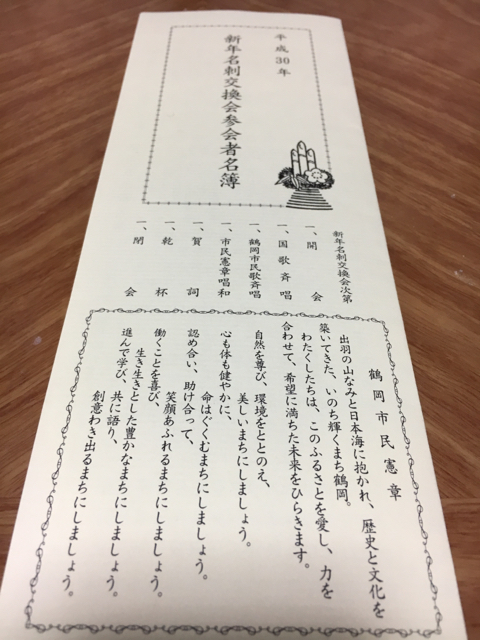 平成30年
新年名刺交換会参会者名簿
新年名刺交換会次第
一、開会
一、国歌斉唱
一、鶴岡市民歌斉唱
一、市民憲章唱和
一、賀詞
一、乾杯
一、閉会
鶴岡市民憲章
出羽の山なみと日本海に抱かれ、歴史と文化を
築いてきた、いのち輝くまち鶴岡。
わたくしたちは、このふるさとを愛し、力を
合わせて、希望に満ちた未来をひらきます。
自然を尊び、環境をととのえ、
美しいまちにしましょう。
心も体も健やかに、
命はぐくむまちにしましょう。
認め合い、助け合って、
笑顔あふれるまちにしましょう。
働くことを喜び、
生き生きとした豊かなまちにしましょう。
進んで学び、共に語り、
創意わき出るまちにしましょう。